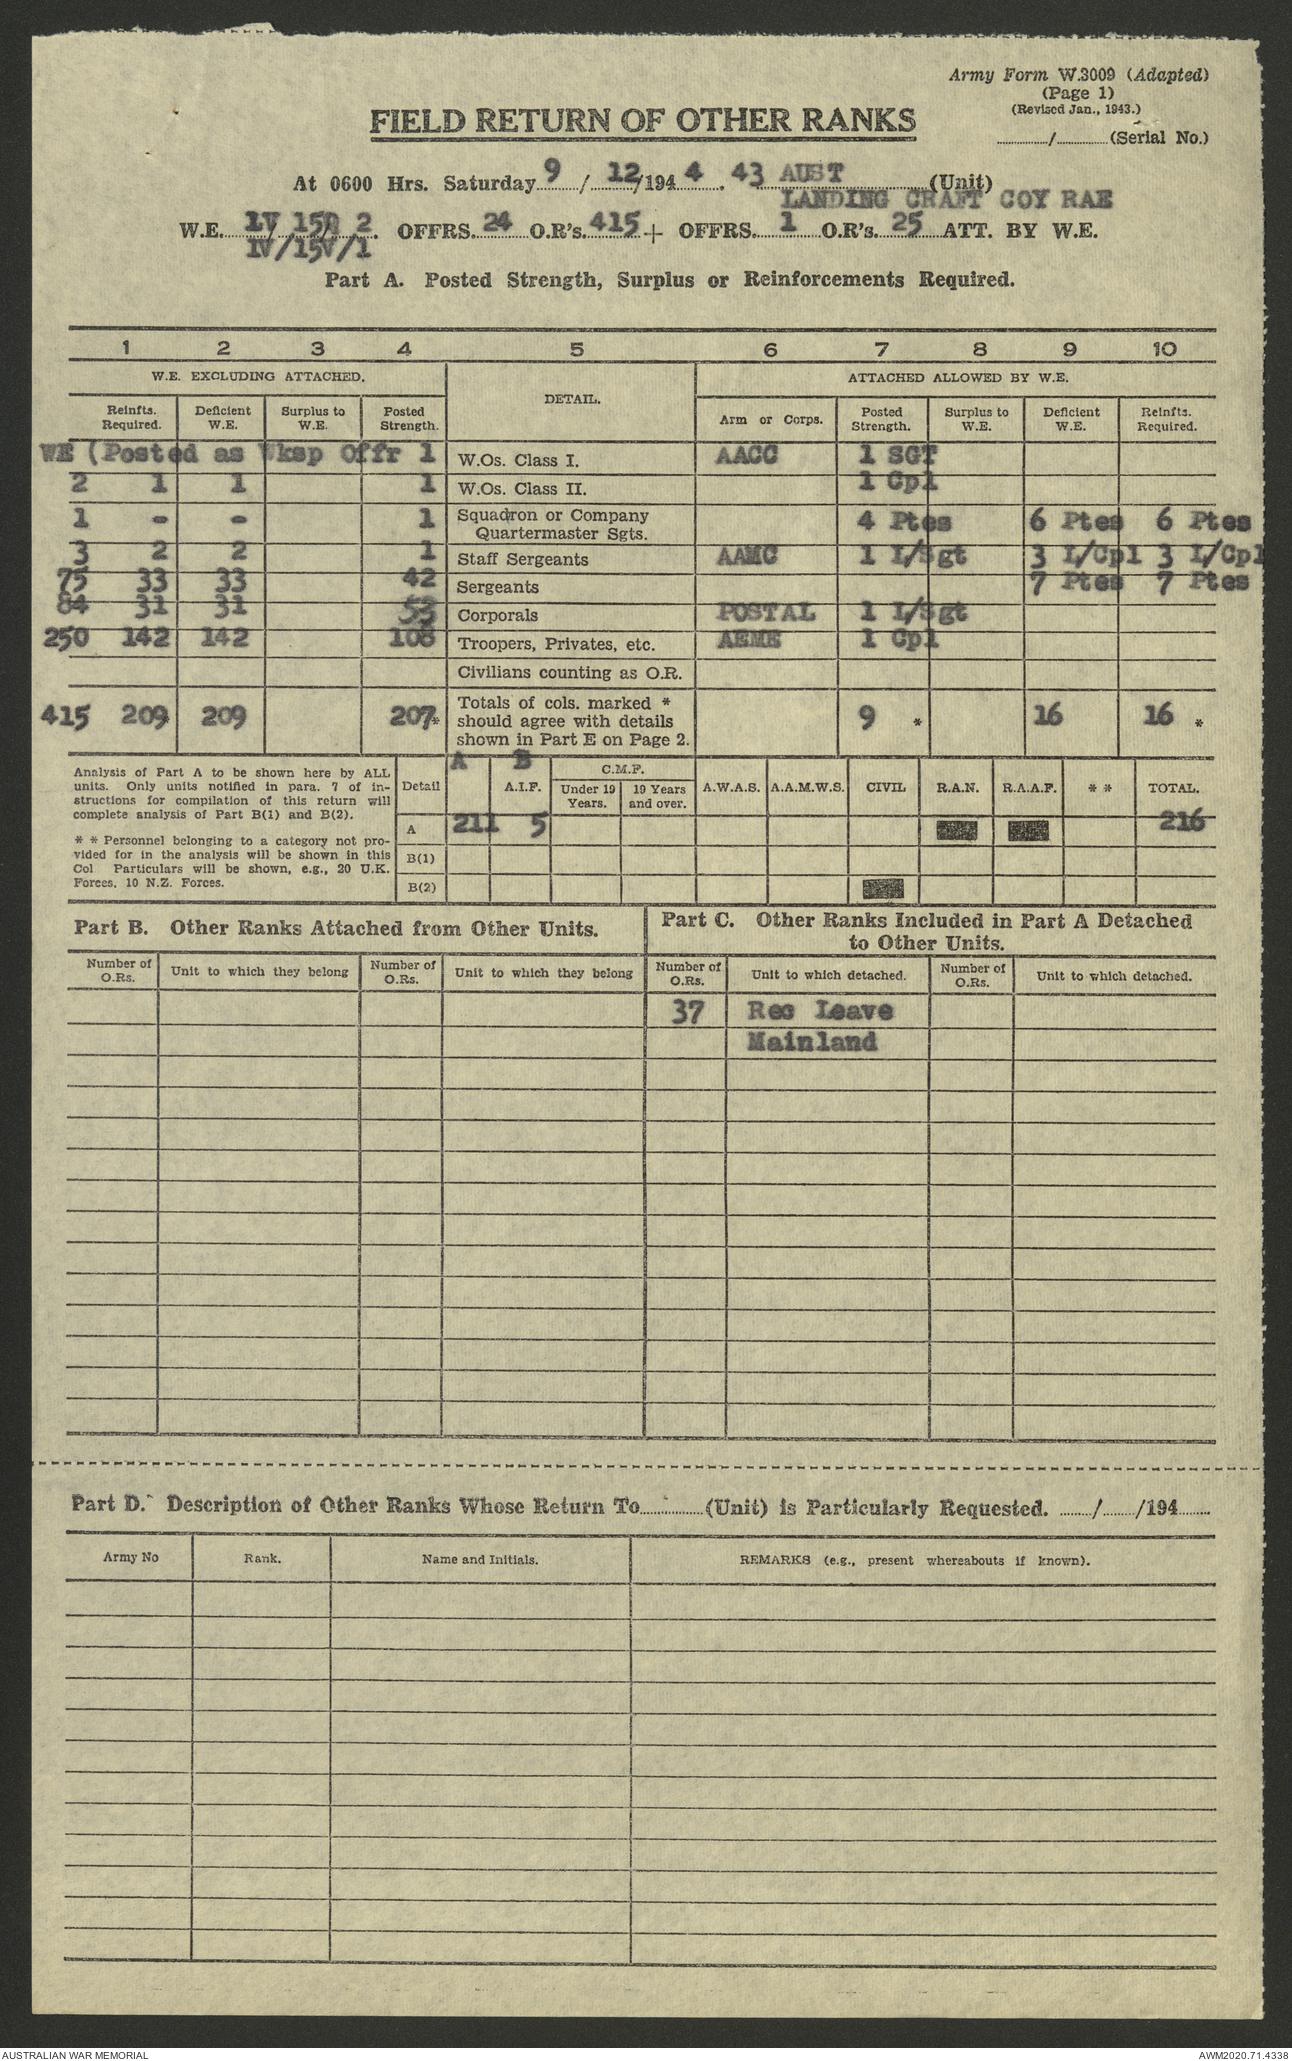 Army Form W.3009 (Adapted)
(Page 1)
(Revised Jan., 1943.)
FIELD RETURN OF OTHER RANKS
............/............(Serial No.)
At 0600 Hrs. Saturday 9 / 12/194 4 . 43 AUST (Unit)
LANDING CRAFT COY RAE
W.E. IV 2. OFFRS. 24 O.R's. 415 + OFFRS. 1 O.R's. 25 ATT. BY W.E.
IV/15V/1
Part A. Posted Strength, Surplus or Reinforcements Required.
1 2 3 4 5 6 7 8 9 10
W.E. EXCLUDING ATTACHED. DETAIL. ATTACHED ALLOWED BY W.E.
Reinfts. Required. Deficient W.E. Surplus to W.E. Posted Strength. Arm or Corps. Posted Strength. Surplus to W.E. Deficient W.E. Reinfts. Required.
WE (Posted as Wksp Offr 1 W.Os. Class I. AACC 1 SGT
2 1 1 1 W.Os. Class II. 1 Cpl
1 - - 1 Squadron or Company Quartermaster Sgts. 4 Ptes 6 Ptes 6 Ptes
3 2 2 1 Staff Sergeants AAMC 1 L/Sgt 3 L/Cpl 3 L/Cpl
75 33 33 42 Sergeants 7 Ptes 7 Ptes
84 31 31 53 Corporals POSTAL 1 L/Sgt
250 142 142 108 Troopers, Privates, etc. AEME 1 Cpl
Civilians counting as O.R.
415 209 209 207* Totals of cols. marked * should agree with details shown in Part E on Page 2. 9 * 16 16 *
Analysis of Part A to be shown here by ALL
units. Only units notified in para. 7 of in-
structions for compilation of this return will
complete analysis of Part B(1) and B(2).
* * Personnel belonging to a category not pro-
vided for in the analysis will be shown in this
Col Particulars will be shown, e.g., 20 U.K.
Forces, 10 N.Z. Forces.
A B
Detail A.I.F. C.M.F. Under 19 Years. 19 Years and over. A.W.A.S. A.A.M.W.S. CIVIL R.A.N. R.A.A.F. * * TOTAL.
A 211 5 216
B(1)
B(2)
Part B. Other Ranks Attached from Other Units.
Part C. Other Ranks Included in Part A Detached
to Other Units.
Number of O.Rs. Unit to which they belong Number of O.Rs. Unit to which they belong Number of O.Rs. Unit to which detached. Number of O.Rs. Unit to which detached.
37 Rec Leave
Mainland
Part D. Description of Other Ranks Whose Return To............(Unit) is Particularly Requested. ......../......../194........
Army No Rank. Name and Initials. REMARKS (e.g., present whereabouts if known).
AUSTRALIAN WAR MEMORIAL AWM2020.71.4338